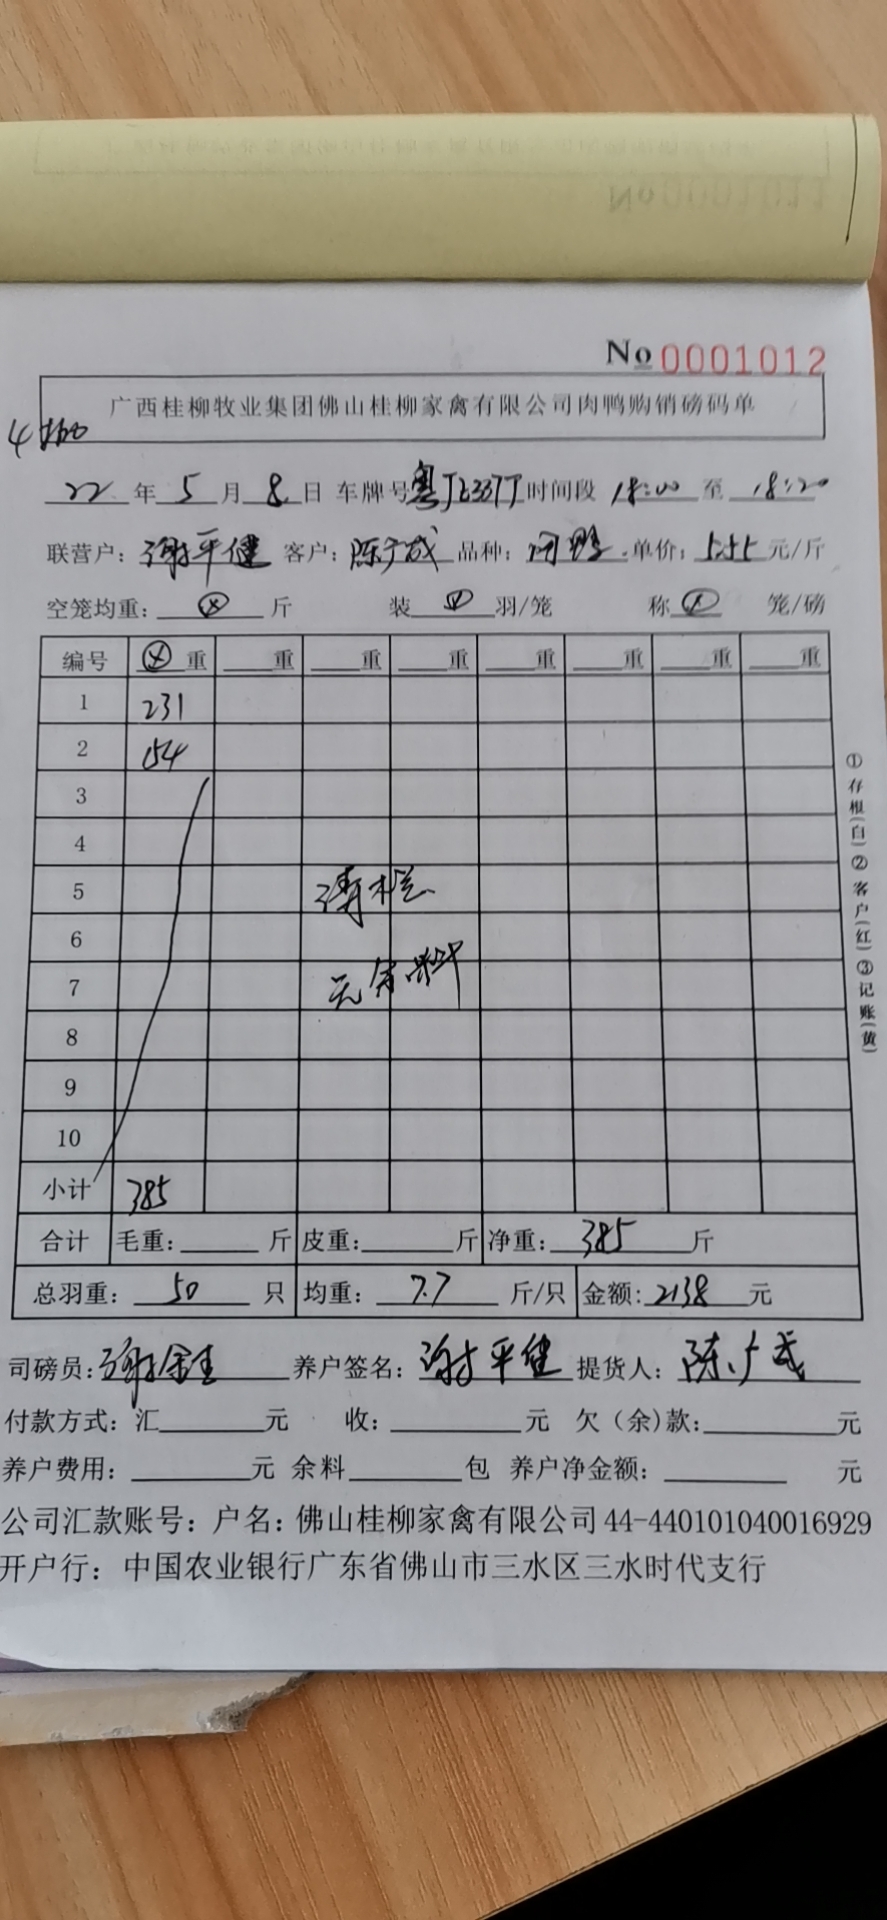 No 0001012
广西桂柳牧业集团佛山桂柳家禽有限公司肉鸭购销磅码单
22 年 5 月 8 日 车牌号 时间段 18:00 至 18:20
联营户: 谢平健 客户: 陈广成 品种: 单价: 5.55 元/斤
空笼均重: 斤 装 羽/笼 称 笼/磅
编号 重 重 重 重 重 重 重 重
1 231
2 154
3
4
5 清栏
6
7 无余料
8
9
10
小计 385
合计 毛重: 斤 皮重: 斤 净重: 385 斤
总羽重: 50 只 均重: 7.7 斤/只 金额: 2138 元
司磅员: 谢金王 养户签名: 谢平健 提货人: 陈广成
付款方式: 汇 元 收: 元 欠(余)款: 元
养户费用: 元 余料 包 养户净金额: 元
公司汇款账号: 户名: 佛山桂柳家禽有限公司 44-440101040016929
开户行: 中国农业银行广东省佛山市三水区三水时代支行
①存根(白)②客户(红)③记账(黄)